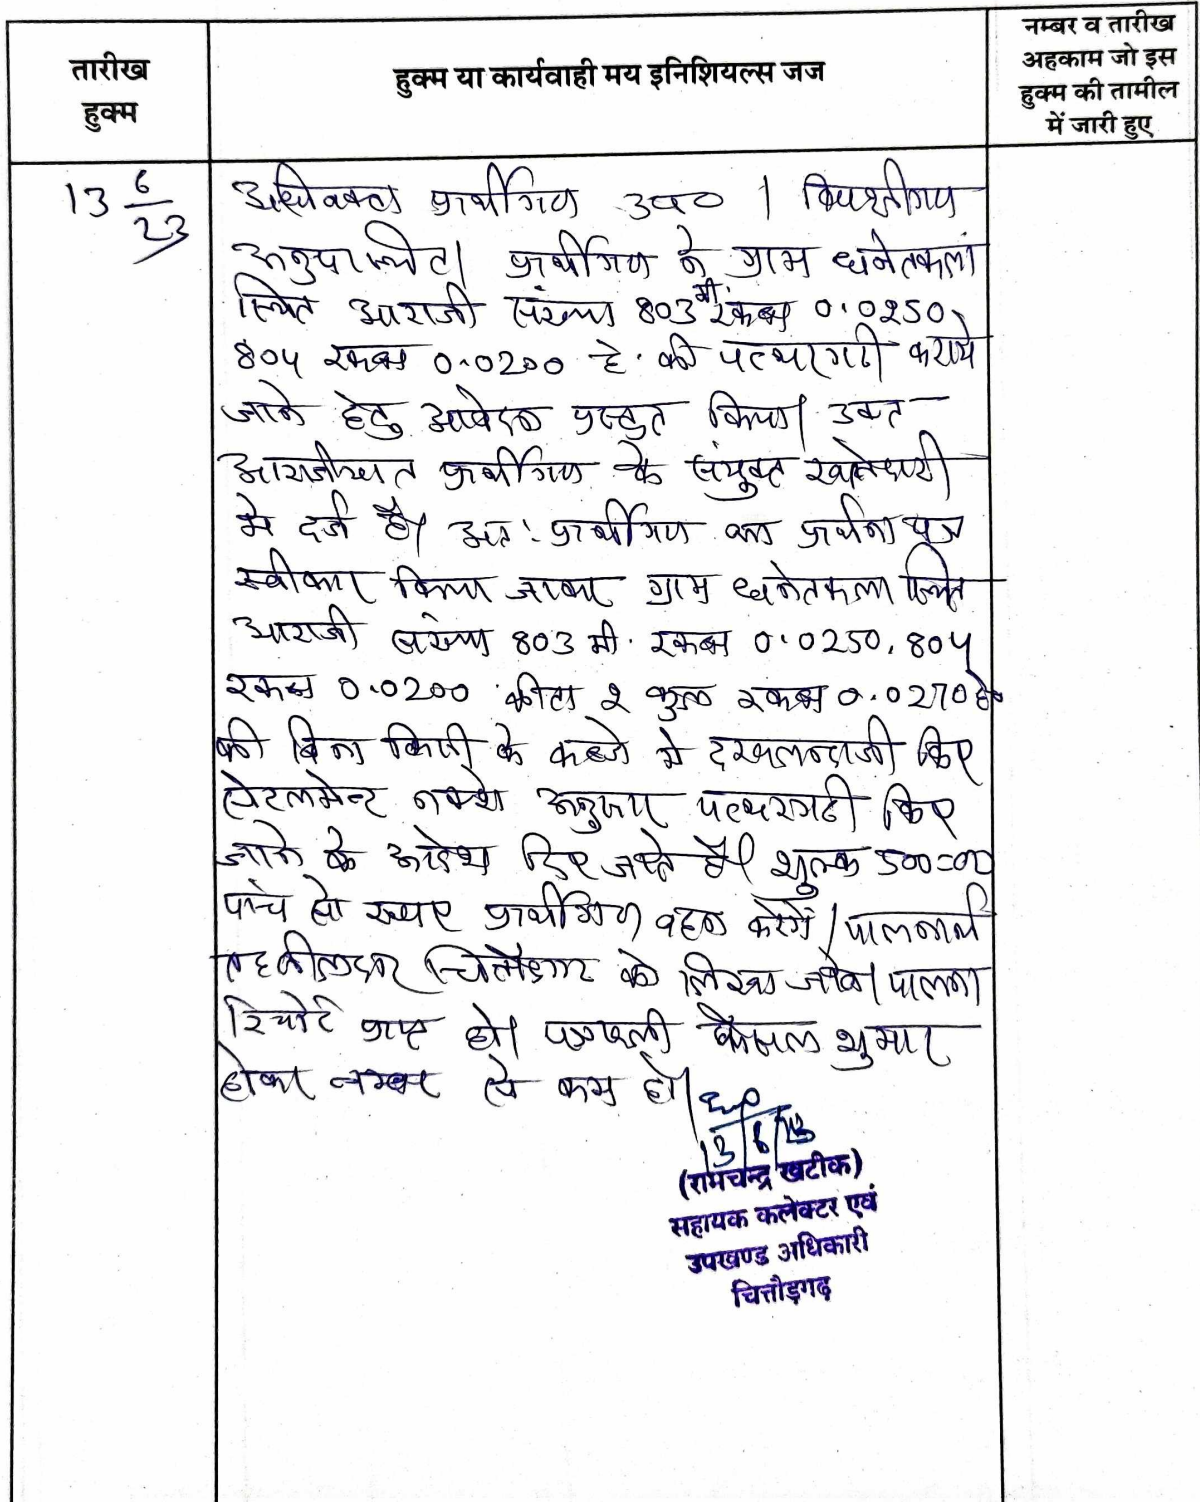 तारीख
हुक्म
हुक्म या कार्यवाही मय इनिशियल्स जज
नम्बर व तारीख
अहकाम जो इस
हुक्म की तामील
में जारी हुए
13 6/23
अधिवक्ता प्रार्थीगण उप० । विपक्षीगण
अनुपस्थित। प्रार्थीगण ने ग्राम धनेतकलां
स्थित आराजी संख्या 803 मी. रकबा 0.0250,
804 रकबा 0.0200 हे. की पत्थरगढी कराये
जाने हेतु आवेदन प्रस्तुत किया। उक्त
आराजीयात प्रार्थीगण के संयुक्त खातेदारी
मे दर्ज है। अतः प्रार्थीगण का प्रार्थना पत्र
स्वीकार किया जाकर ग्राम धनेतकला स्थित
आराजी संख्या 803 मी. रकबा 0.0250, 804
रकबा 0.0200 कीता 2 कुल रकबा 0.0270 हे०
की बिना किसी के कब्जे मे दखलन्दाजी किए
सेटलमेन्ट नक्शे अनुसार पत्थरगढी किए
जाने के आदेश दिए जाते है। शुल्क 500=00
पांच सो रूपए प्रार्थीगण वहन करेगें। पालनार्थ
तहसीलदार चित्तौड़गढ को लिखा जावे। पालना
रिपोर्ट प्राप्त हो। पत्रावली फैसल शुमार
होकर नम्बर से कम हो।
13/6/23
(रामचन्द्र खटीक)
सहायक कलेक्टर एवं
उपखण्ड अधिकारी
चित्तौड़गढ़